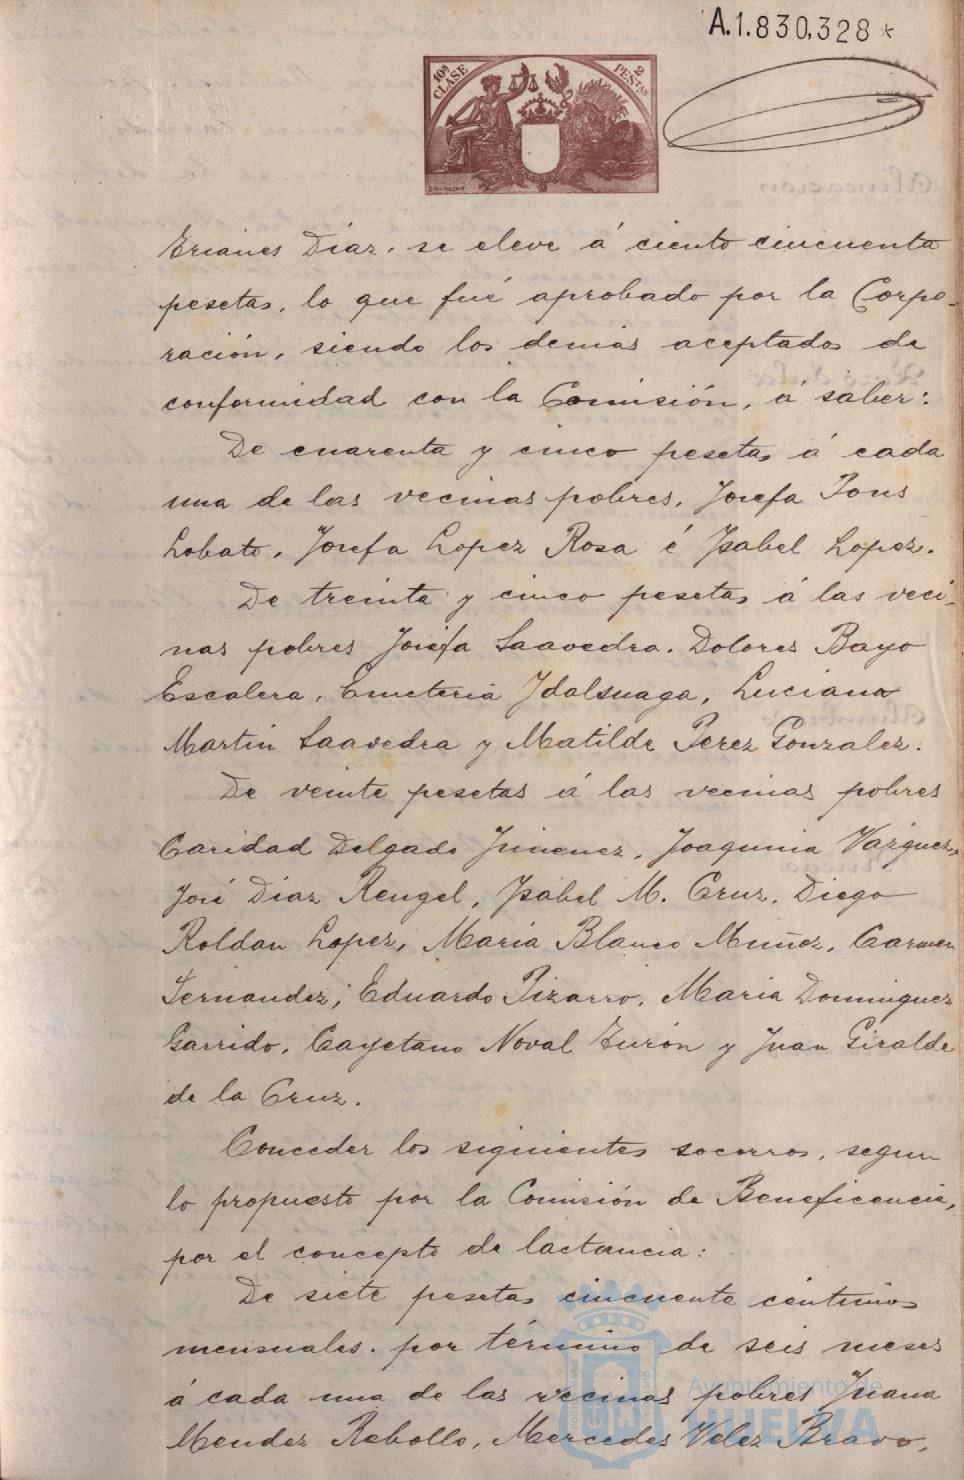 A.1.830,328*
10ª CLASE
2 PESTAS
Erianes Diaz, se eleve á ciento cincuenta
pesetas, lo que fué aprobado por la Corpo-
ración, siendo los demas aceptados de
conformidad con la Comisión, á saber:
De cuarenta y cinco pesetas á cada
una de las vecinas pobres, Josefa Pons
Lobato, Josefa Lopez Rosa é Ysabel Lopez.
De treinta y cinco pesetas á las veci-
nas pobres Josefa Saavedra, Dolores Bayo
Escalera, Emeteria Ydalsuaga, Luciana
Martin Saavedra y Matilde Perez Gonzalez.
De veinte pesetas á las vecinas pobres
Caridad Delgado Jimenez, Joaquina Vazquez,
José Diaz Rengel, Ysabel M. Cruz, Diego
Roldan Lopez, Maria Blanco Muñoz, Carmen
Fernandez, Eduardo Pizarro, Maria Dominguez
Garrido, Cayetano Noval Turón y Juan Giralde
de la Cruz.
Conceder los siguientes socorros, segun
lo propuesto por la Comisión de Beneficencia,
por el concepto de lactancia:
De siete pesetas cincuenta céntimos
mensuales, por término de seis meses
á cada una de las vecinas pobres Juana
Mendez Rebollo, Mercedes Velez Bravo,
Ayuntamiento de
HUELVA